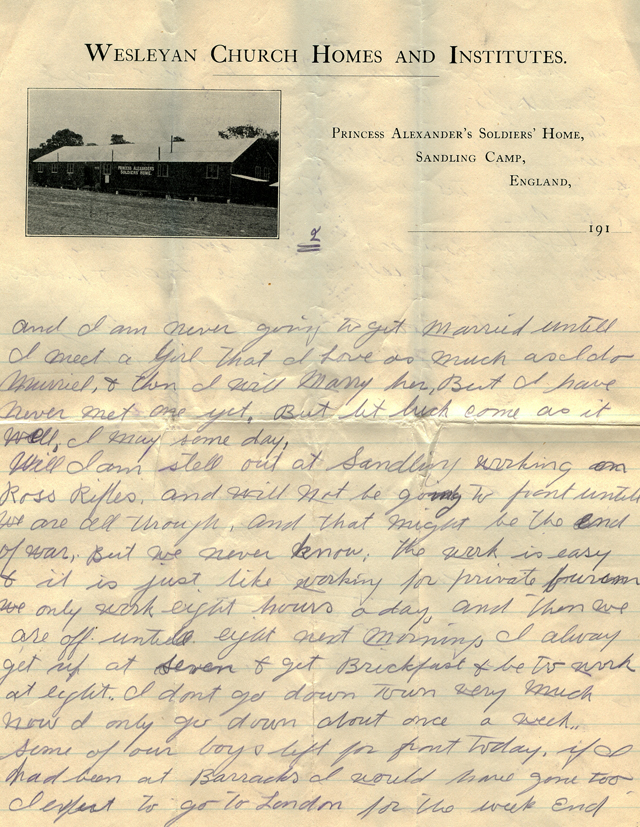 WESLEYAN CHURCH HOMES AND INSTITUTES.
PRINCESS ALEXANDER'S SOLDIERS' HOME,
SANDLING CAMP,
ENGLAND,
191
PRINCESS ALEXANDERS
SOLDIERS HOME.
2
and I am never going to get married untill
I meet a Girl that I Love as much as I do
Muriel, & then I will Marry her, But I have
never met one yet, But let luck come as it
well, I may some day,
Well I am still out at Sandling working on
Ross Rifles. and will not be going to front untill
we are all through, and that might be the end
of war, But we never know, the work is easy
& it is just like working for private
we only work eight hours a day, and then we
are off untill eight next Morning, I alway
get up at seven & get Brickfast & be to work
at eight. I dont go down town very much
now I only go down about once a week.
Some of our boys left for front today, if I
had been at Barracks I would have gone too
I expect to go to London for the week End